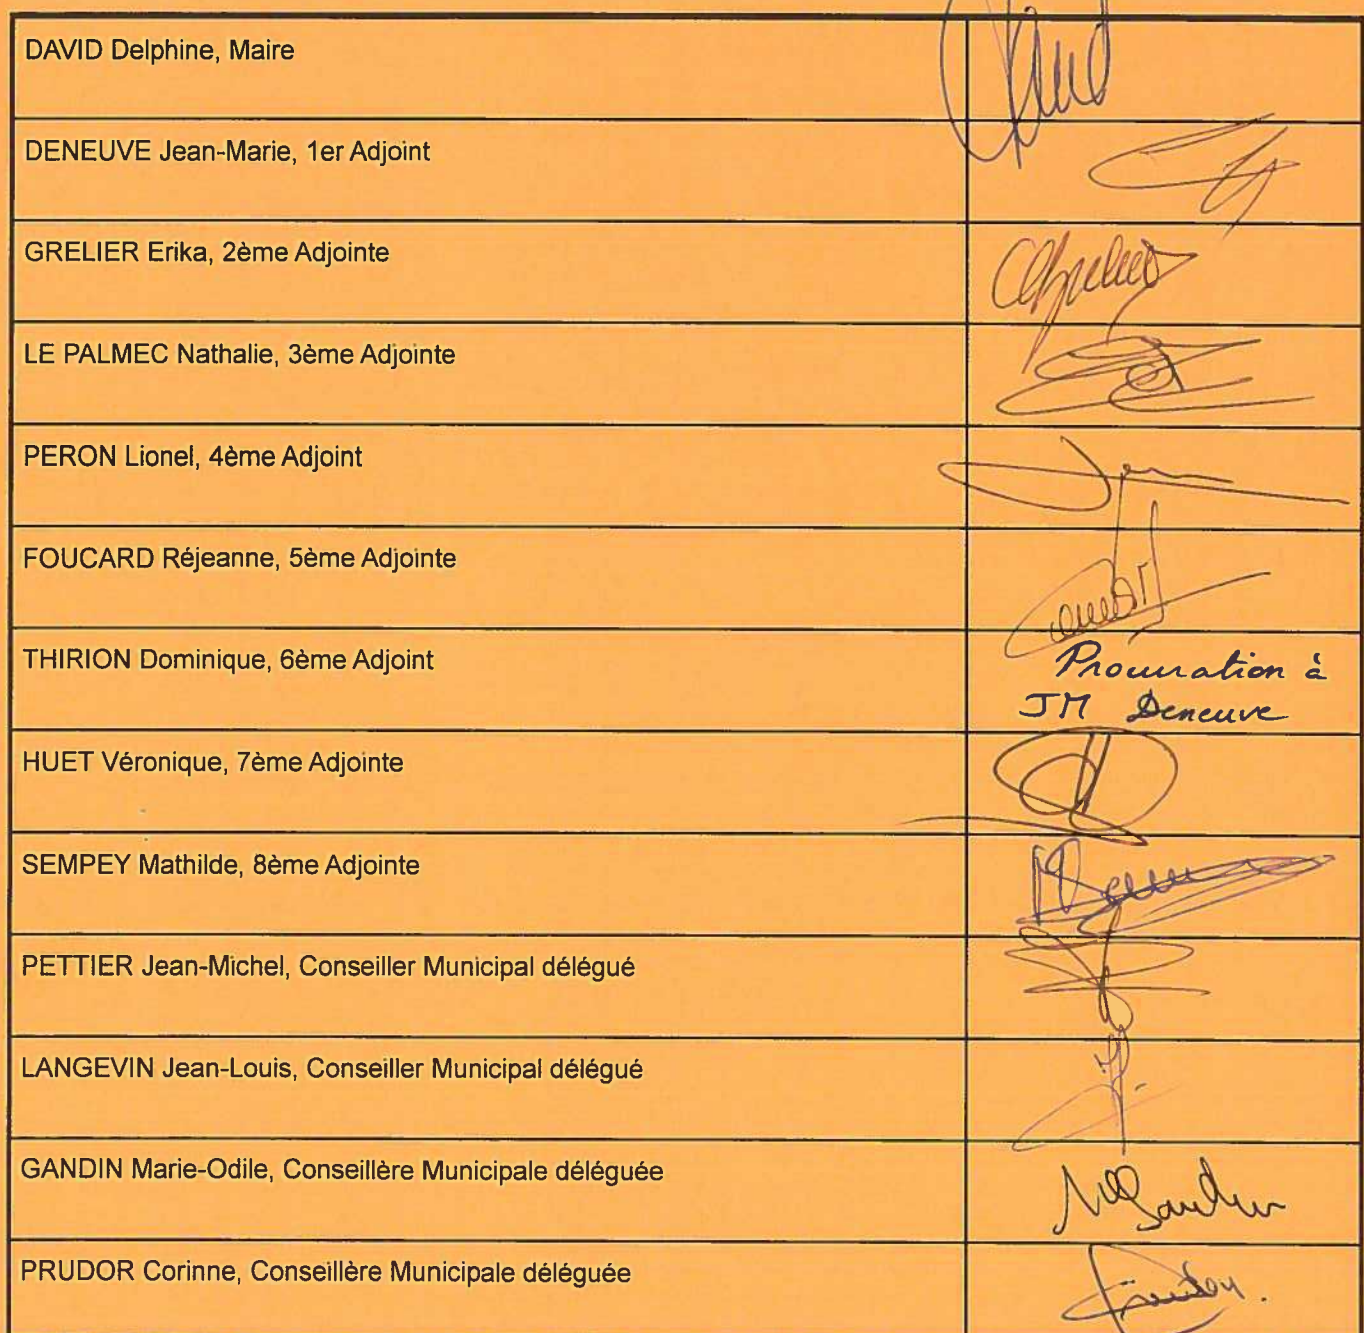 DAVID Delphine, Maire
DENEUVE Jean-Marie, 1er Adjoint
GRELIER Erika, 2ème Adjointe
LE PALMEC Nathalie, 3ème Adjointe
PERON Lionel, 4ème Adjoint
FOUCARD Réjeanne, 5ème Adjointe
THIRION Dominique, 6ème Adjoint
Procuration à
JM Deneuve
HUET Véronique, 7ème Adjointe
SEMPEY Mathilde, 8ème Adjointe
PETTIER Jean-Michel, Conseiller Municipal délégué
LANGEVIN Jean-Louis, Conseiller Municipal délégué
GANDIN Marie-Odile, Conseillère Municipale déléguée
PRUDOR Corinne, Conseillère Municipale déléguée